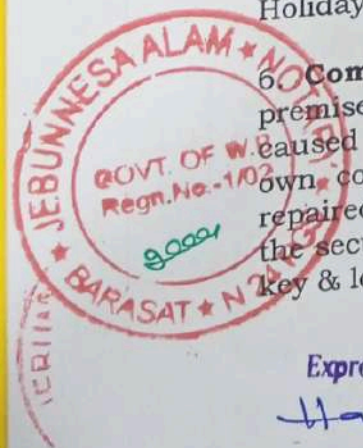 Holiday
6. Com
premise
caused
own, co
repaired
the secu
key & lo
JEBUNNESA ALAM ★ NOTARY
GOVT. OF W.B.
Regn.No.-1/02
BARASAT ★ N 24
Expre